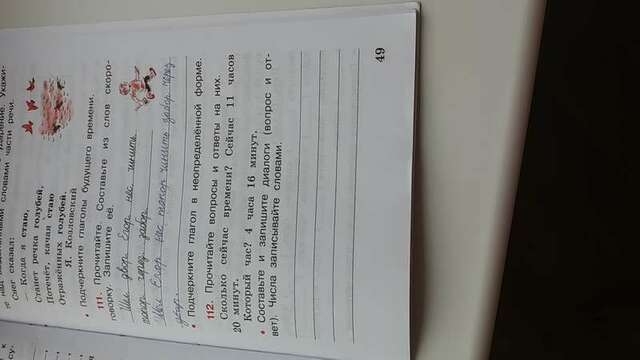 Снег сказал:
— Когда я стаю,
Станет речка голубей,
Потечёт, качая стаю
Отражённых голубей.
Я. Козловский
• Подчеркните глаголы будущего времени.
111. Прочитайте. Составьте из слов скоро-
говорку. Запишите её.
двор Егор нас чинить
топор забор
Егор топор чинить забор
• Подчеркните глагол в неопределённой форме.
112. Прочитайте вопросы и ответы на них.
Сколько сейчас времени? Сейчас 11 часов
20 минут.
Который час? 4 часа 16 минут.
• Составьте и запишите диалоги (вопрос и от-
вет). Числа записывайте словами.
49